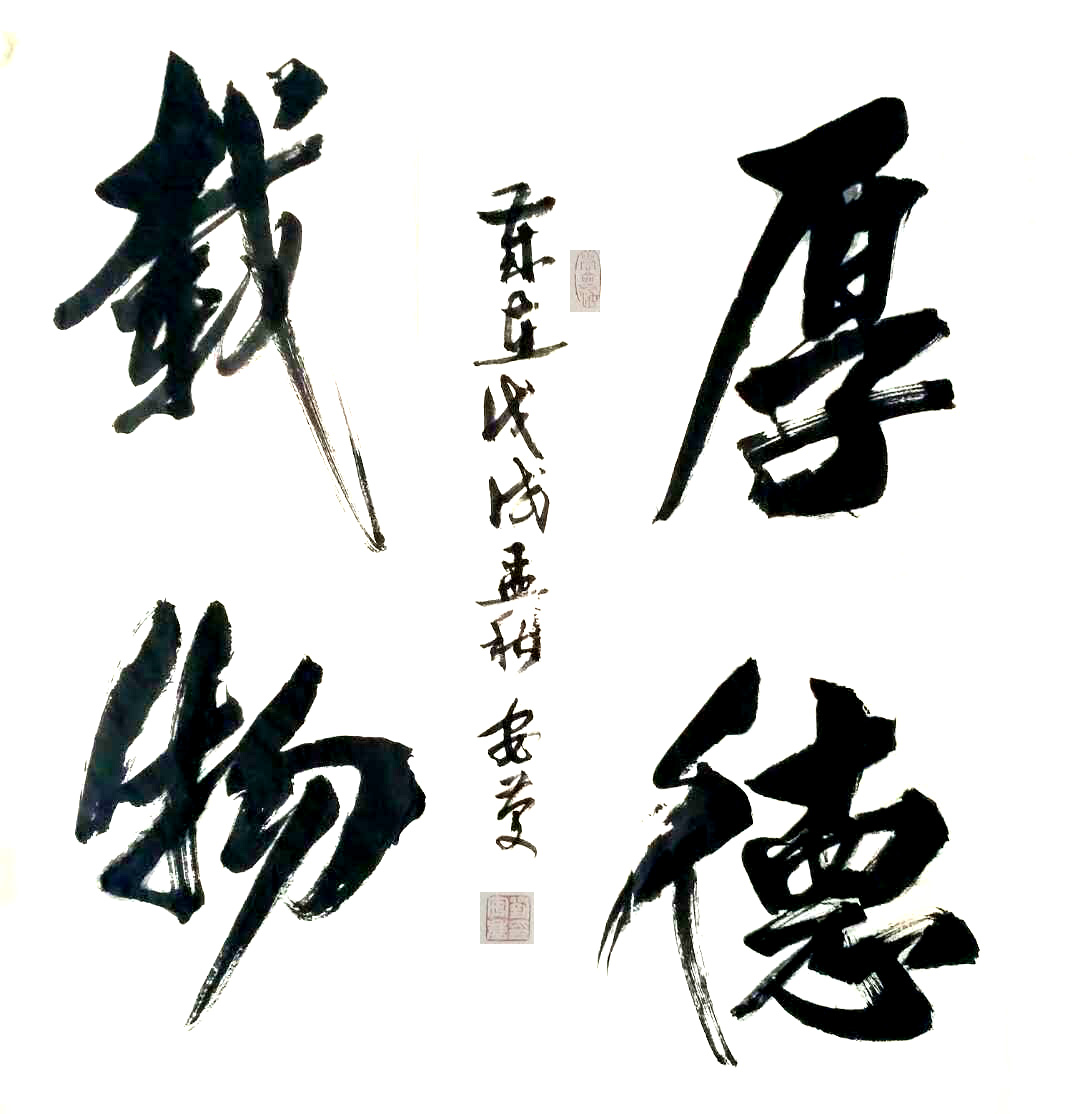 厚德
載物
戊戌孟秋